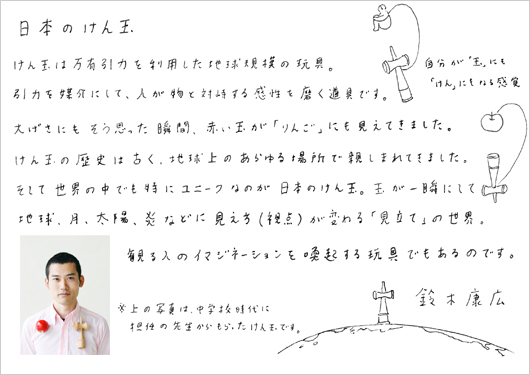 日本のけん玉
けん玉は万有引力を利用した地球規模の玩具。
引力を媒介にして、人が物と対峙する感性を磨く道具です。
自分が"玉"にも
「けん」にもなる感覚
大げさにもそう思った瞬間、赤い玉が「りんご」にも見えてきました。
けん玉の歴史は古く、地球上のあらゆる場所で親しまれてきました。
そして世界の中でも特にユニークなのが日本のけん玉。玉が一瞬にして
地球、月、太陽、炎などに見え方(視点)が変わる「見立て」の世界。
観る人のイマジネーションを喚起する玩具でもあるのです。
※上の写真は、中学校時代に
担任の先生からもらったけん玉です。
鈴木康広